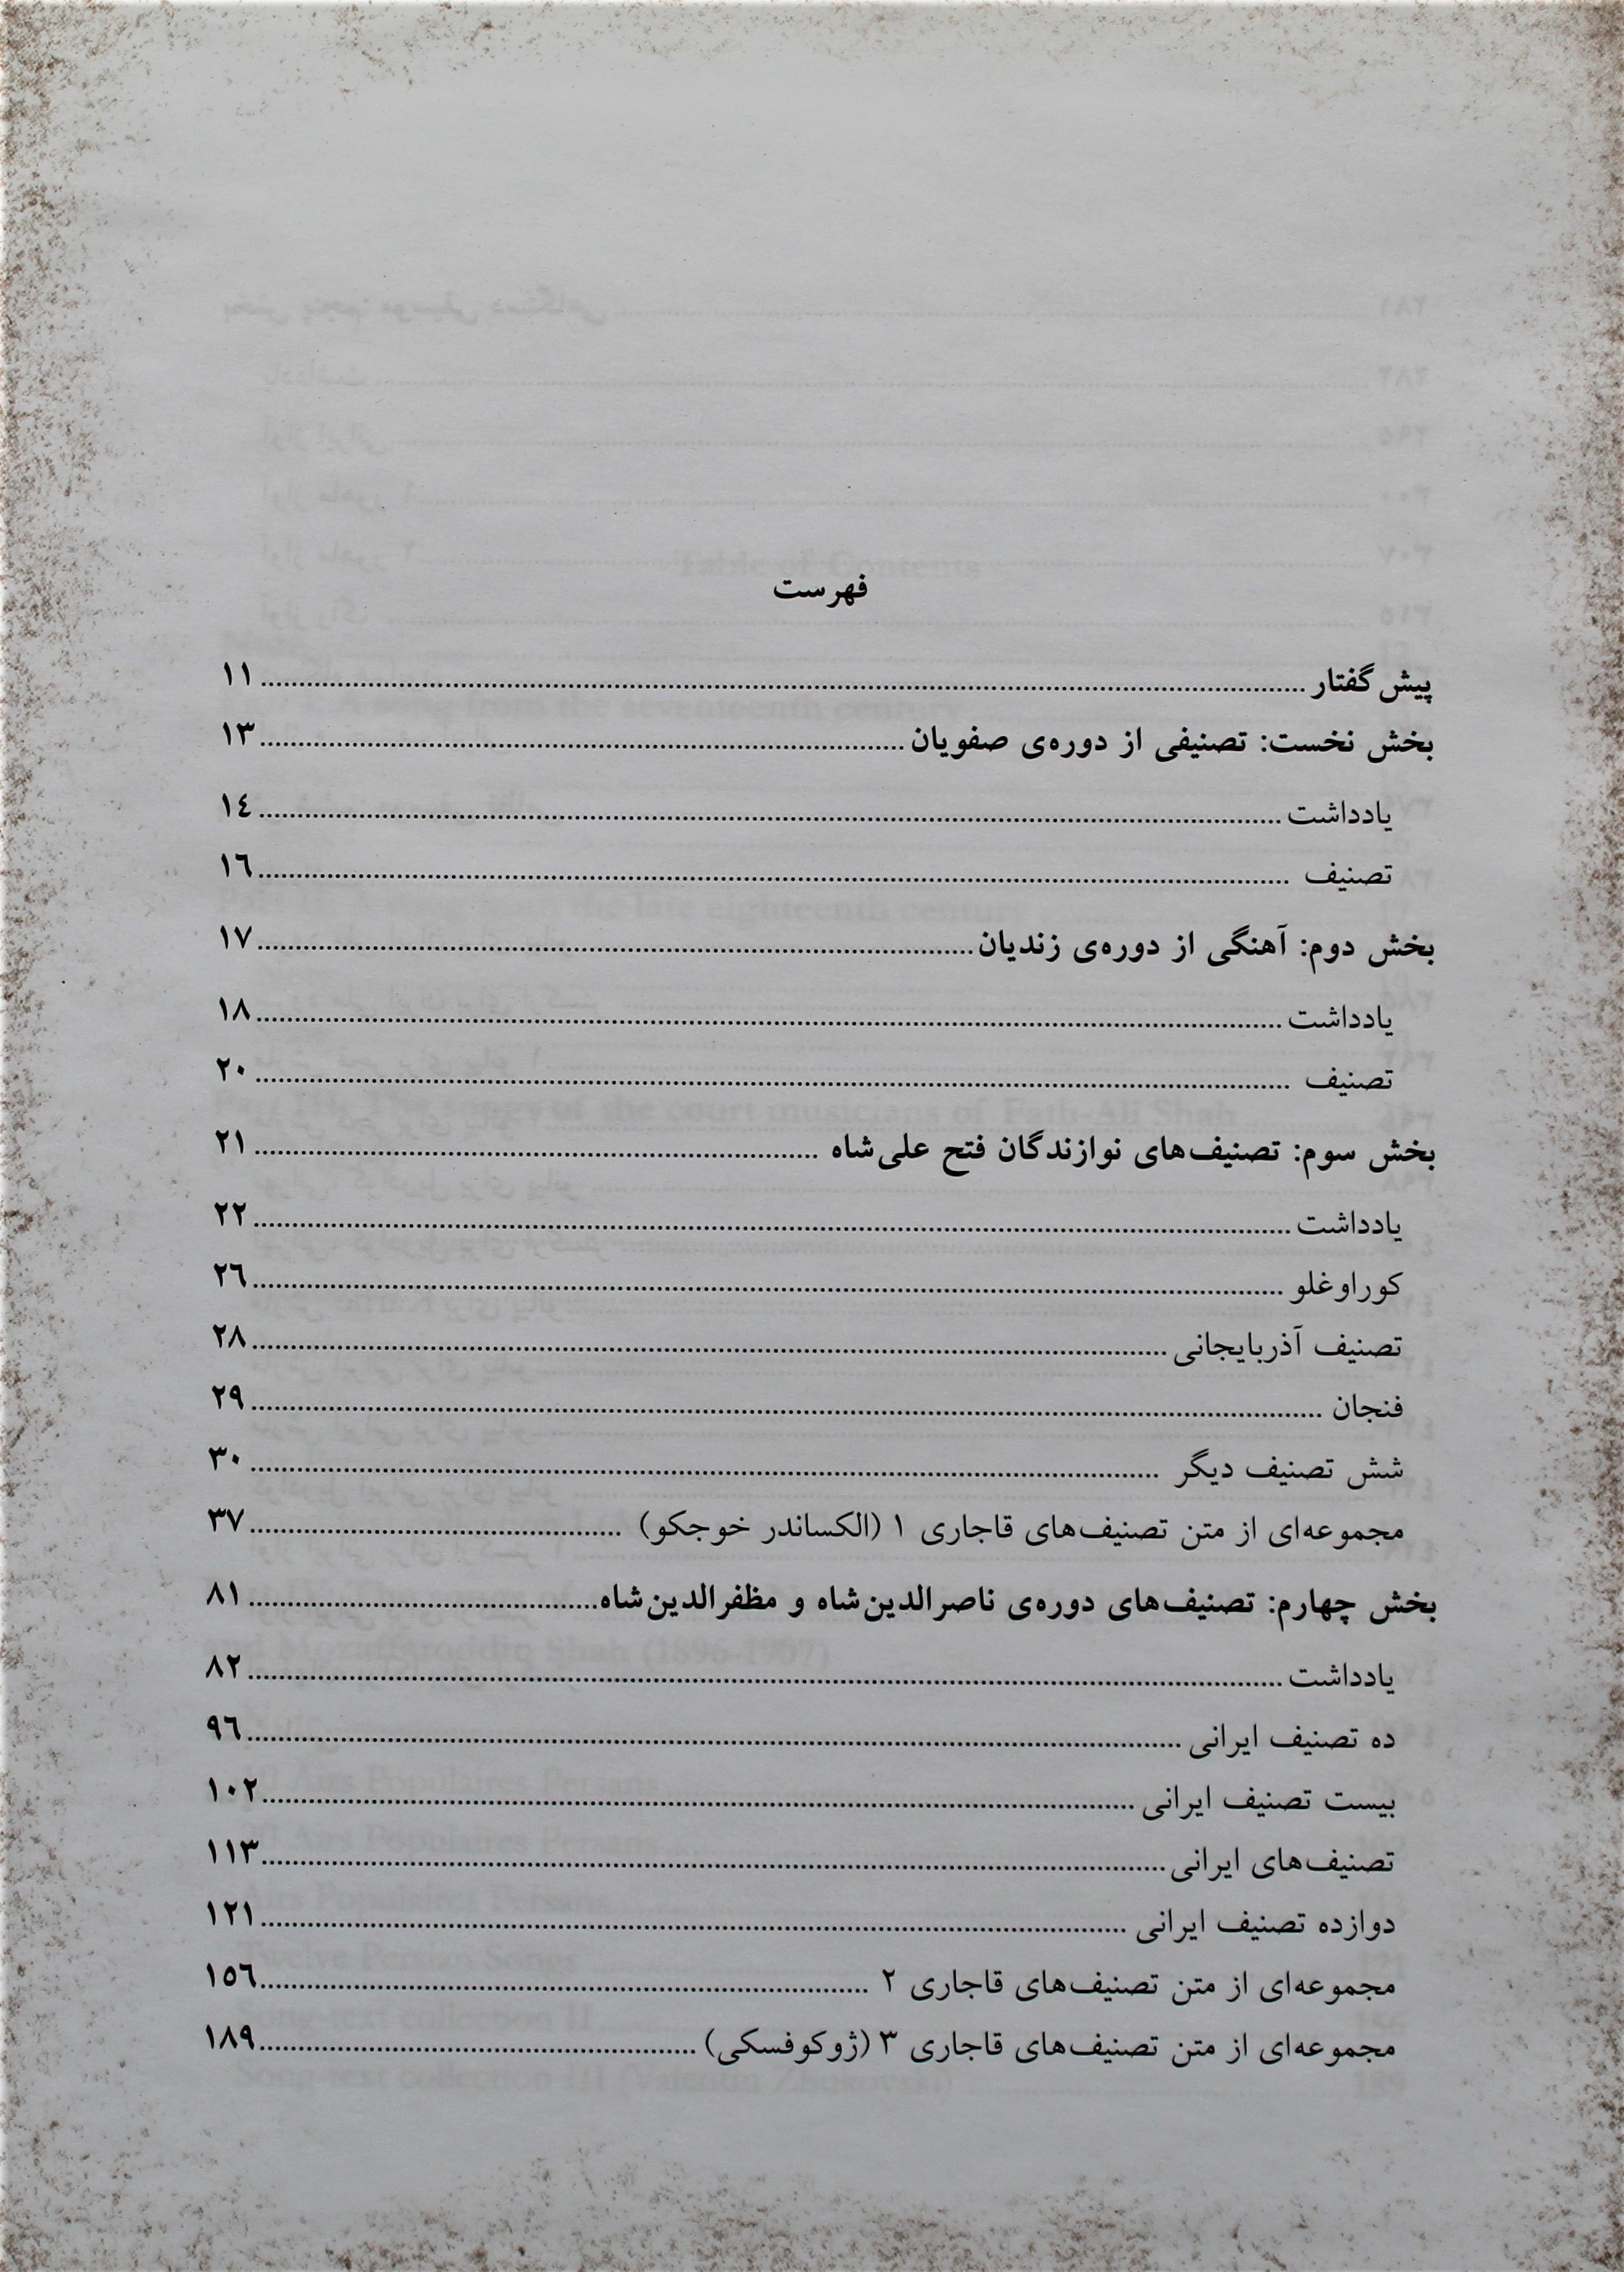 فهرست
پیش گفتار ۱۱
بخش نخست: تصنیفی از دوره‌ی صفویان ۱۳
یادداشت ۱٤
تصنیف ۱٦
بخش دوم: آهنگی از دوره‌ی زندیان ۱۷
یادداشت ۱۸
تصنیف ۲۰
بخش سوم: تصنیف‌های نوازندگان فتح علی‌شاه ۲۱
یادداشت ۲۲
کوراوغلو ۲٦
تصنیف آذربایجانی ۲۸
فنجان ۲۹
شش تصنیف دیگر ۳۰
مجموعه‌ای از متن تصنیف‌های قاجاری ۱ (الکساندر خوجکو) ۳۷
بخش چهارم: تصنیف‌های دوره‌ی ناصرالدین‌شاه و مظفرالدین‌شاه ۸۱
یادداشت ۸۲
ده تصنیف ایرانی ۹٦
بیست تصنیف ایرانی ۱۰۲
تصنیف‌های ایرانی ۱۱۳
دوازده تصنیف ایرانی ۱۲۱
مجموعه‌ای از متن تصنیف‌های قاجاری ۲ ۱۵٦
مجموعه‌ای از متن تصنیف‌های قاجاری ۳ (ژوکوفسکی) ۱۸۹